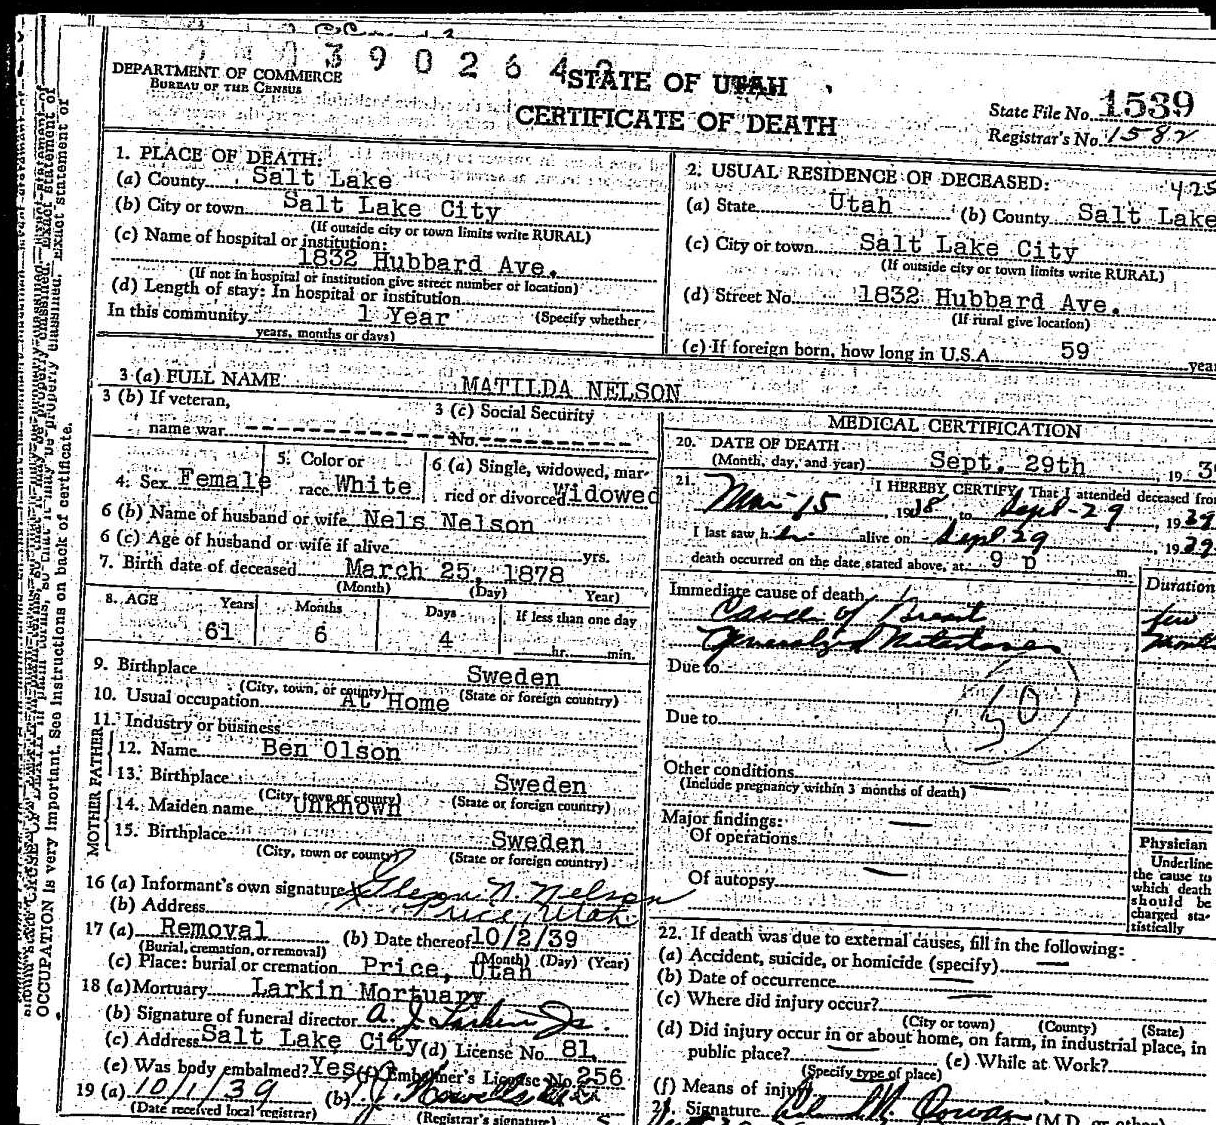 3 9 0 2 6 4
DEPARTMENT OF COMMERCE
BUREAU OF THE CENSUS
STATE OF UTAH
CERTIFICATE OF DEATH
State File No. 1539
Registrar's No. 1582
1. PLACE OF DEATH:
(a) County Salt Lake
(b) City or town Salt Lake City
(If outside city or town limits write RURAL)
(c) Name of hospital or institution:
1832 Hubbard Ave.
(If not in hospital or institution give street number or location)
(d) Length of stay: In hospital or institution
In this community 1 Year (Specify whether
years, months or days)
2. USUAL RESIDENCE OF DECEASED: 425
(a) State Utah (b) County Salt Lake
(c) City or town Salt Lake City
(If outside city or town limits write RURAL)
(d) Street No. 1832 Hubbard Ave.
(If rural give location)
(e) If foreign born, how long in U.S.A. 59 year
3 (a) FULL NAME MATILDA NELSON
3 (b) If veteran,
name war
3 (c) Social Security
No.
4. Sex Female
5. Color or
race White
6 (a) Single, widowed, mar-
ried or divorced Widowed
6 (b) Name of husband or wife Nels Nelson
6 (c) Age of husband or wife if alive yrs.
7. Birth date of deceased March 25, 1878
(Month) (Day) Year)
8. AGE Years Months Days If less than one day
61 6 4 hr. min.
9. Birthplace Sweden
(City, town, or county) (State or foreign country)
10. Usual occupation At Home
11. Industry or business
FATHER
12. Name Ben Olson
13. Birthplace Sweden
(City, town or county) (State or foreign country)
MOTHER
14. Maiden name Unknown
15. Birthplace Sweden
(City, town or county) (State or foreign country)
16 (a) Informant's own signature Glenn N. Nelson
(b) Address Price, Utah
17 (a) Removal (b) Date thereof 10/2/39
(Burial, cremation, or removal) (Month) (Day) (Year)
(c) Place: burial or cremation Price, Utah
18 (a) Mortuary Larkin Mortuary
(b) Signature of funeral director A. J. Larkin Jr.
(c) Address Salt Lake City (d) License No. 81
(e) Was body embalmed? Yes (f) Embalmer's License No. 256
19 (a) 10/1/39 (b)
(Date received local registrar) (Registrar's signature)
MEDICAL CERTIFICATION
20. DATE OF DEATH
(Month, day, and year) Sept. 29th 193
21. I HEREBY CERTIFY, That I attended deceased from
Mar 15, 1938 to Sept-29, 1939
I last saw her alive on Sept 29, 1939
death occurred on the date stated above, at 9 P m.
Immediate cause of death Duration
Cancer of Breast few
Generalized Metastases months
Due to
50
Due to
Other conditions
(Include pregnancy within 3 months of death)
Major findings:
Of operations
Of autopsy
Physician
Underline
the cause to
which death
should be
charged sta-
tistically
22. If death was due to external causes, fill in the following:
(a) Accident, suicide, or homicide (specify)
(b) Date of occurrence
(c) Where did injury occur?
(City or town) (County) (State)
(d) Did injury occur in or about home, on farm, in industrial place, in
public place? (e) While at Work?
(Specify type of place)
(f) Means of injury
Signature (M.D. or other)
OCCUPATION is very important. See instructions on back of certificate.